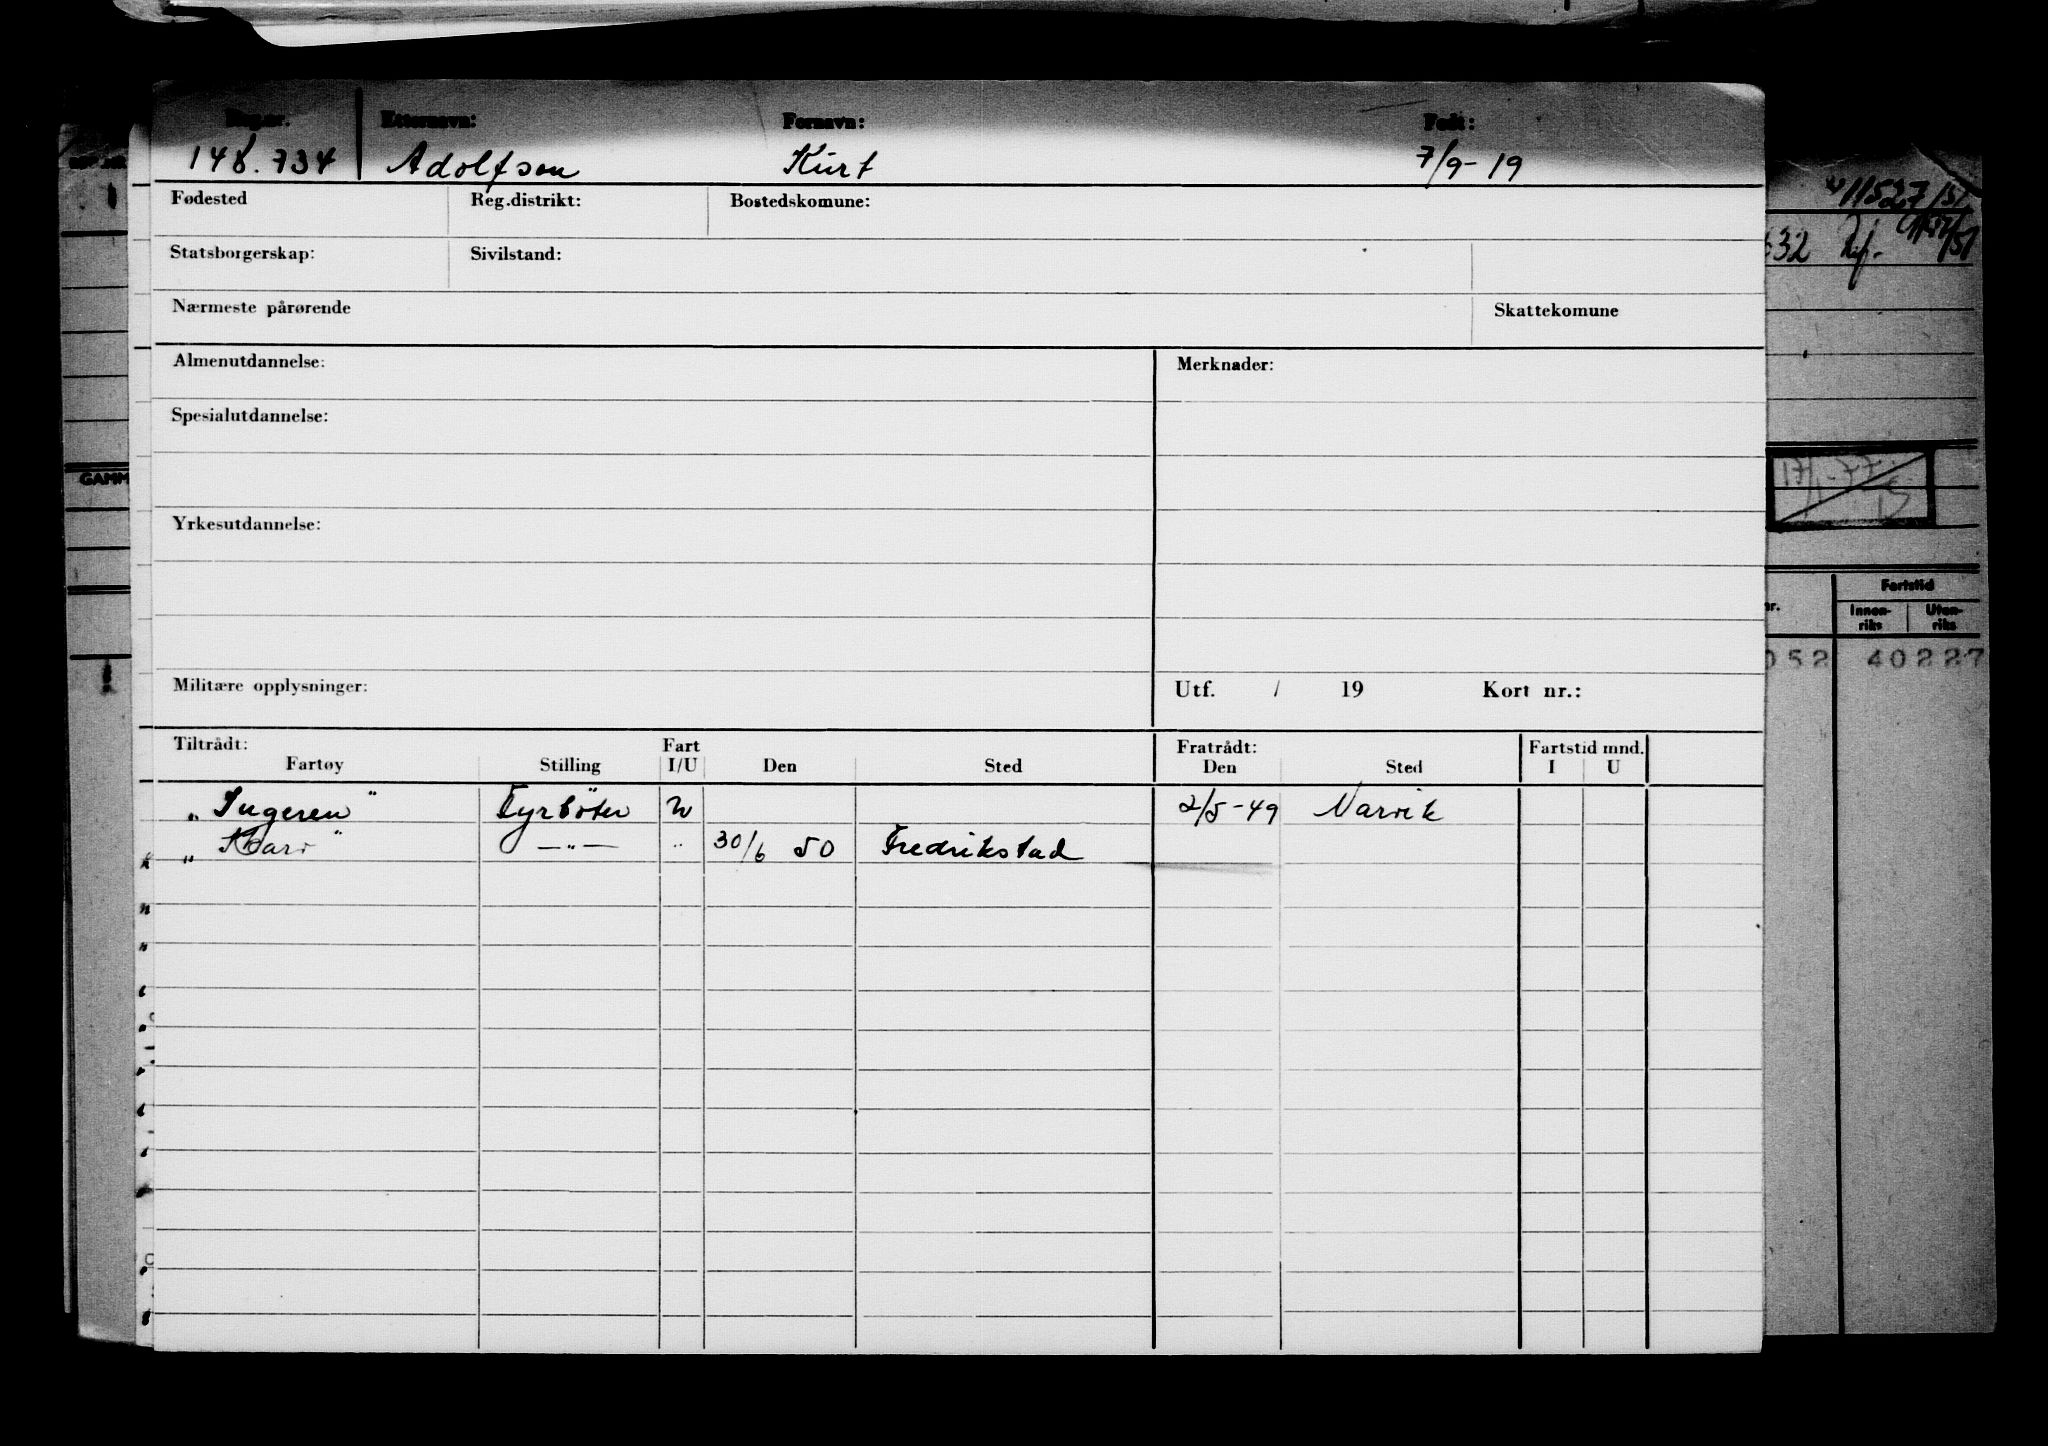 Reg.nr. Etternavn: Fornavn: Født:
148.734 Adolfson Kurt 7/9-19
Fødested Reg.distrikt: Bostedskomune:
Statsborgerskap: Sivilstand:
Nærmeste pårørende Skattekomune
Almenutdannelse: Merknader:
Spesialutdannelse:
Yrkesutdannelse:
Militære opplysninger: Utf. / 19 Kort nr.:
Tiltrådt: Fart Fratrådt: Fartstid mnd.
Fartøy Stilling I/U Den Sted Den Sted I U
"Ingeren" Fyrböter U 2/5-49 Narvik
" " —"— " 30/6 50 Fredrikstad
11527/51
632
GAMM
17/1-77
Fartstid
nr. Innen- Uten-
riks riks
052 40227